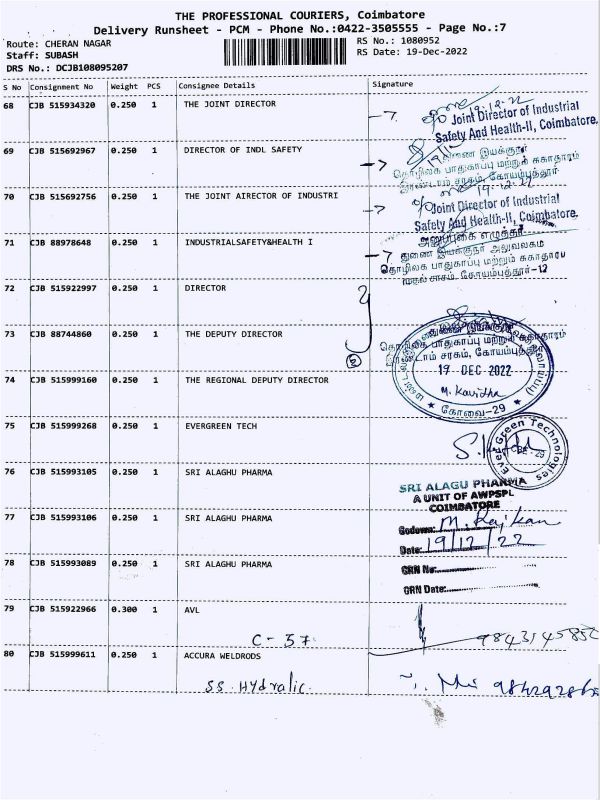 THE PROFESSIONAL COURIERS, Coimbatore
Delivery Runsheet - PCM - Phone No.:0422-3505555 - Page No.:7
Route: CHERAN NAGAR
RS No.: 1080952
Staff: SUBASH
RS Date: 19-Dec-2022
DRS No.: DCJB108095207
S No Consignment No Weight PCS Consignee Details Signature
68 CJB 515934320 0.250 1 THE JOINT DIRECTOR
19.12.22
Joint Director of Industrial
Safety And Health-II, Coimbatore.
69 CJB 515692967 0.250 1 DIRECTOR OF INDL SAFETY
துணை இயக்குநர்
தொழிலக பாதுகாப்பு மற்றும் சுகாதாரம்
இரண்டாம் சரகம், கோயம்புத்தூர்
70 CJB 515692756 0.250 1 THE JOINT AIRECTOR OF INDUSTRI
19.12.22
Joint Director of Industrial
Safety And Health-II, Coimbatore.
71 CJB 88978648 0.250 1 INDUSTRIALSAFETY&HEALTH I
துணை இயக்குநர் அலுவலகம்
தொழிலக பாதுகாப்பு மற்றும் சுகாதாரம்
முதல் சரகம், கோயம்புத்தூர்-12
72 CJB 515922997 0.250 1 DIRECTOR
73 CJB 88744860 0.250 1 THE DEPUTY DIRECTOR
தொழிலக பாதுகாப்பு மற்றும் சுகாதாரம்
இரண்டாம் சரகம், கோயம்புத்தூர்
19 DEC 2022
M. Kavitha
கோவை-29
74 CJB 515999160 0.250 1 THE REGIONAL DEPUTY DIRECTOR
75 CJB 515999268 0.250 1 EVERGREEN TECH
Ever Green Technologies
CBE-29
76 CJB 515993105 0.250 1 SRI ALAGHU PHARMA
SRI ALAGU PHARMA
A UNIT OF AWPSPL
COIMBATORE
77 CJB 515993106 0.250 1 SRI ALAGHU PHARMA
Godown:
Date: 19/12/22
78 CJB 515993089 0.250 1 SRI ALAGHU PHARMA
GRN No:
GRN Date:
79 CJB 515922966 0.300 1 AVL
C-57
80 CJB 515999611 0.250 1 ACCURA WELDRODS
SS. Hydralic.